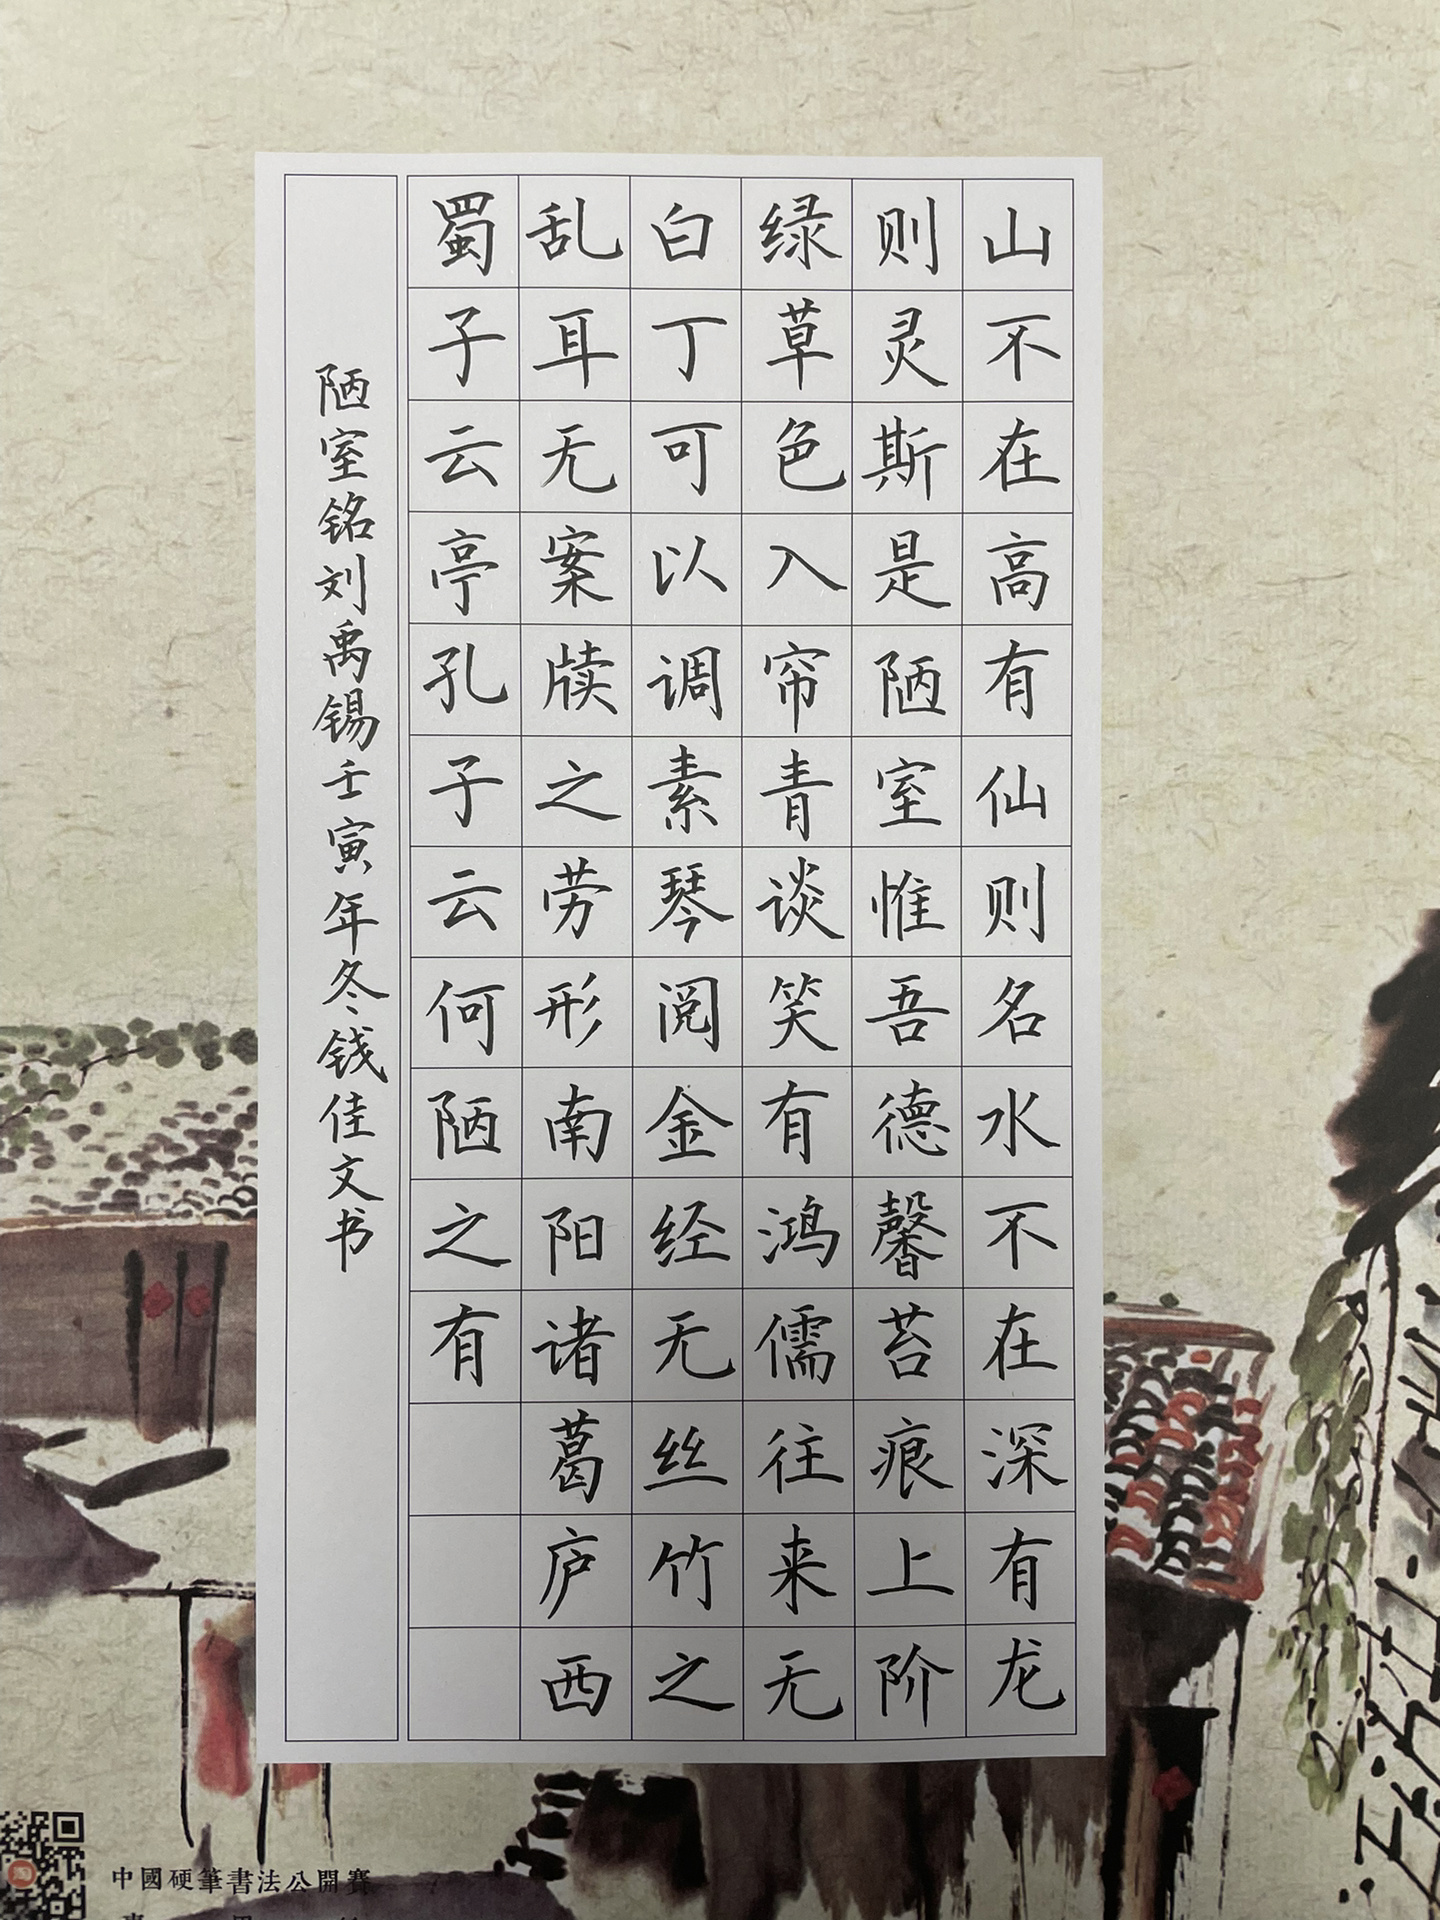 山不在高有仙则名水不在深有龙
则灵斯是陋室惟吾德馨苔痕上阶
绿草色入帘青谈笑有鸿儒往来无
白丁可以调素琴阅金经无丝竹之
乱耳无案牍之劳形南阳诸葛庐西
蜀子云亭孔子云何陋之有
陋室铭刘禹锡壬寅年冬钱佳文书
中國硬筆書法公開賽